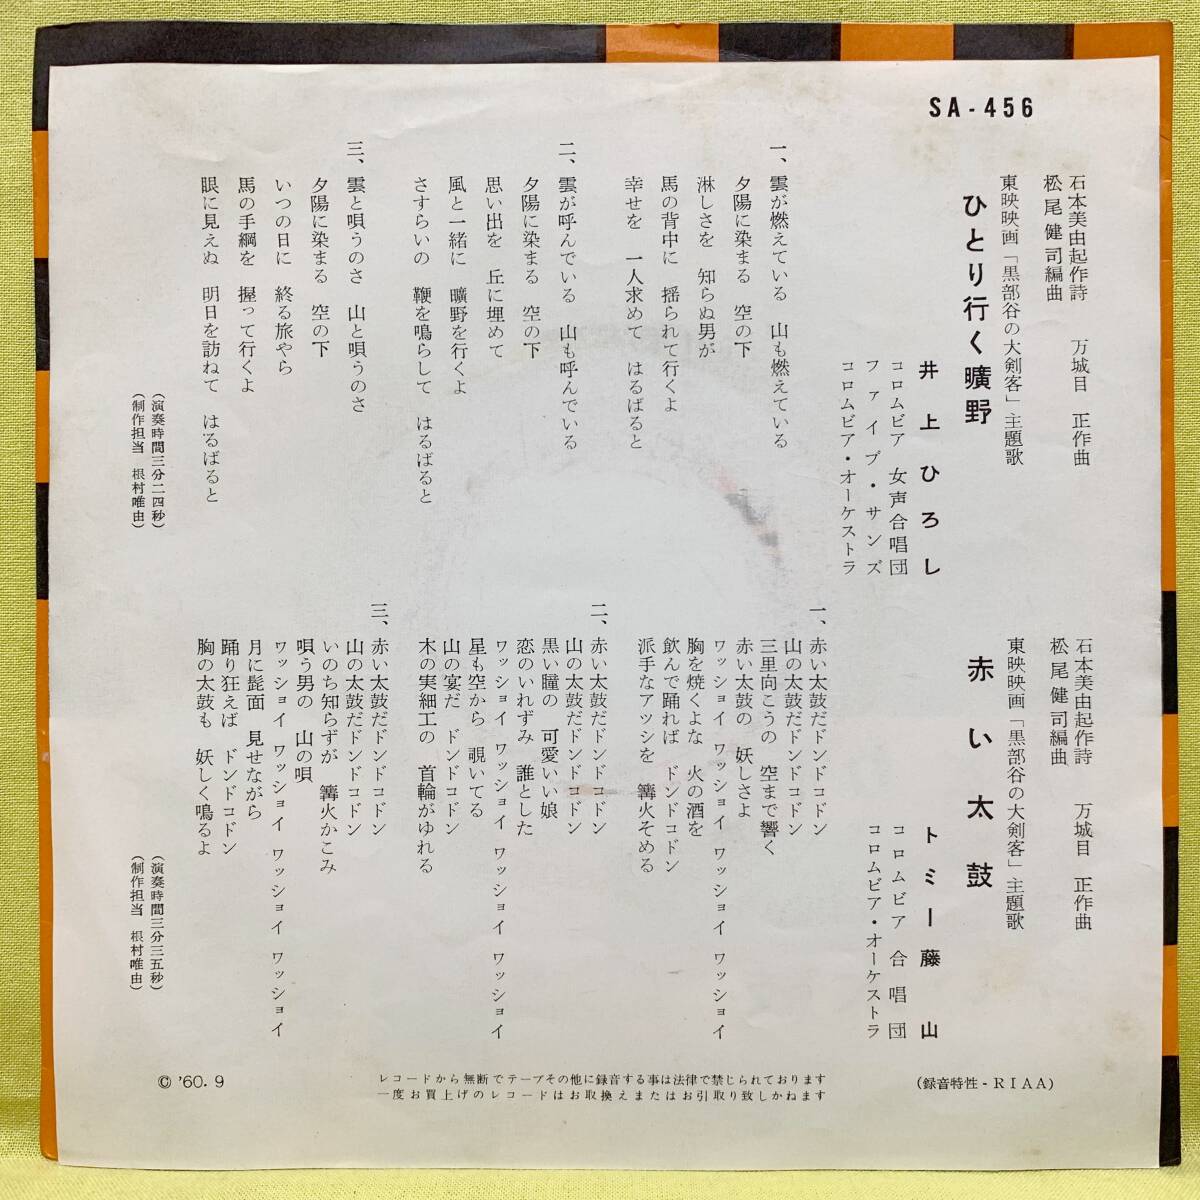 SA-456
石本美由起作詩　万城目　正作曲
松尾健司編曲
東映映画「黒部谷の大剣客」主題歌
ひとり行く曠野
井上ひろし
コロムビア女声合唱団
ファイブ・サンズ
コロムビア・オーケストラ
一、雲が燃えている　山も燃えている
夕陽に染まる　空の下
淋しさを　知らぬ男が
馬の背中に　揺られて行くよ
幸せを　一人求めて　はるばると
二、雲が呼んでいる　山も呼んでいる
夕陽に染まる　空の下
思い出を　丘に埋めて
風と一緒に　曠野を行くよ
さすらいの　鞭を鳴らして　はるばると
三、雲と唄うのさ　山と唄うのさ
夕陽に染まる　空の下
いつの日に　終る旅やら
馬の手綱を　握って行くよ
眼に見えぬ　明日を訪ねて　はるばると
（演奏時間三分二四秒）
（制作担当　根村唯由）
石本美由起作詩　万城目　正作曲
松尾健司編曲
東映映画「黒部谷の大剣客」主題歌
赤い太鼓
トミー藤山
コロムビア合唱団
コロムビア・オーケストラ
一、赤い太鼓だドンドコドン
山の太鼓だドンドコドン
三里向こうの　空まで響く
赤い太鼓の　妖しさよ
ワッショイ　ワッショイ　ワッショイ　ワッショイ
胸を焼くよな　火の酒を
飲んで踊れば　ドンドコドン
派手なアッシを　篝火そめる
二、赤い太鼓だドンドコドン
山の太鼓だドンドコドン
黒い瞳の　可愛いい娘
恋のいれずみ　誰とした
ワッショイ　ワッショイ　ワッショイ　ワッショイ
星も空から　覗いてる
山の宴だ　ドンドコドン
木の実細工の　首輪がゆれる
三、赤い太鼓だドンドコドン
山の太鼓だドンドコドン
いのち知らずが　篝火かこみ
唄う男の　山の唄
ワッショイ　ワッショイ　ワッショイ　ワッショイ
月に髭面　見せながら
踊り狂えば　ドンドコドン
胸の太鼓も　妖しく鳴るよ
（演奏時間三分三五秒）
（制作担当　根村唯由）
© '60. 9
レコードから無断でテープその他に録音する事は法律で禁じられております
一度お買上げのレコードはお取換えまたはお引取り致しかねます
（録音特性-RIAA）